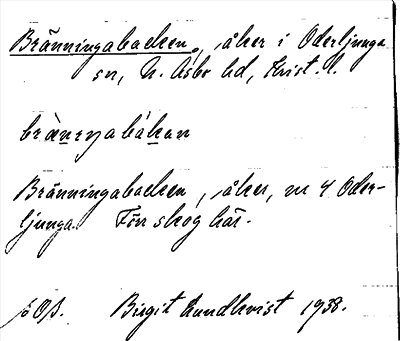 Bränningabacken, åker i Oderljunga
sn, N. Åsbo hd, Krist. l.
brän​ŋabákan
Bränningabacken, åker, nr 4 Oder-
ljunga. Förr skog här.
Birgit Lundkvist 1938.